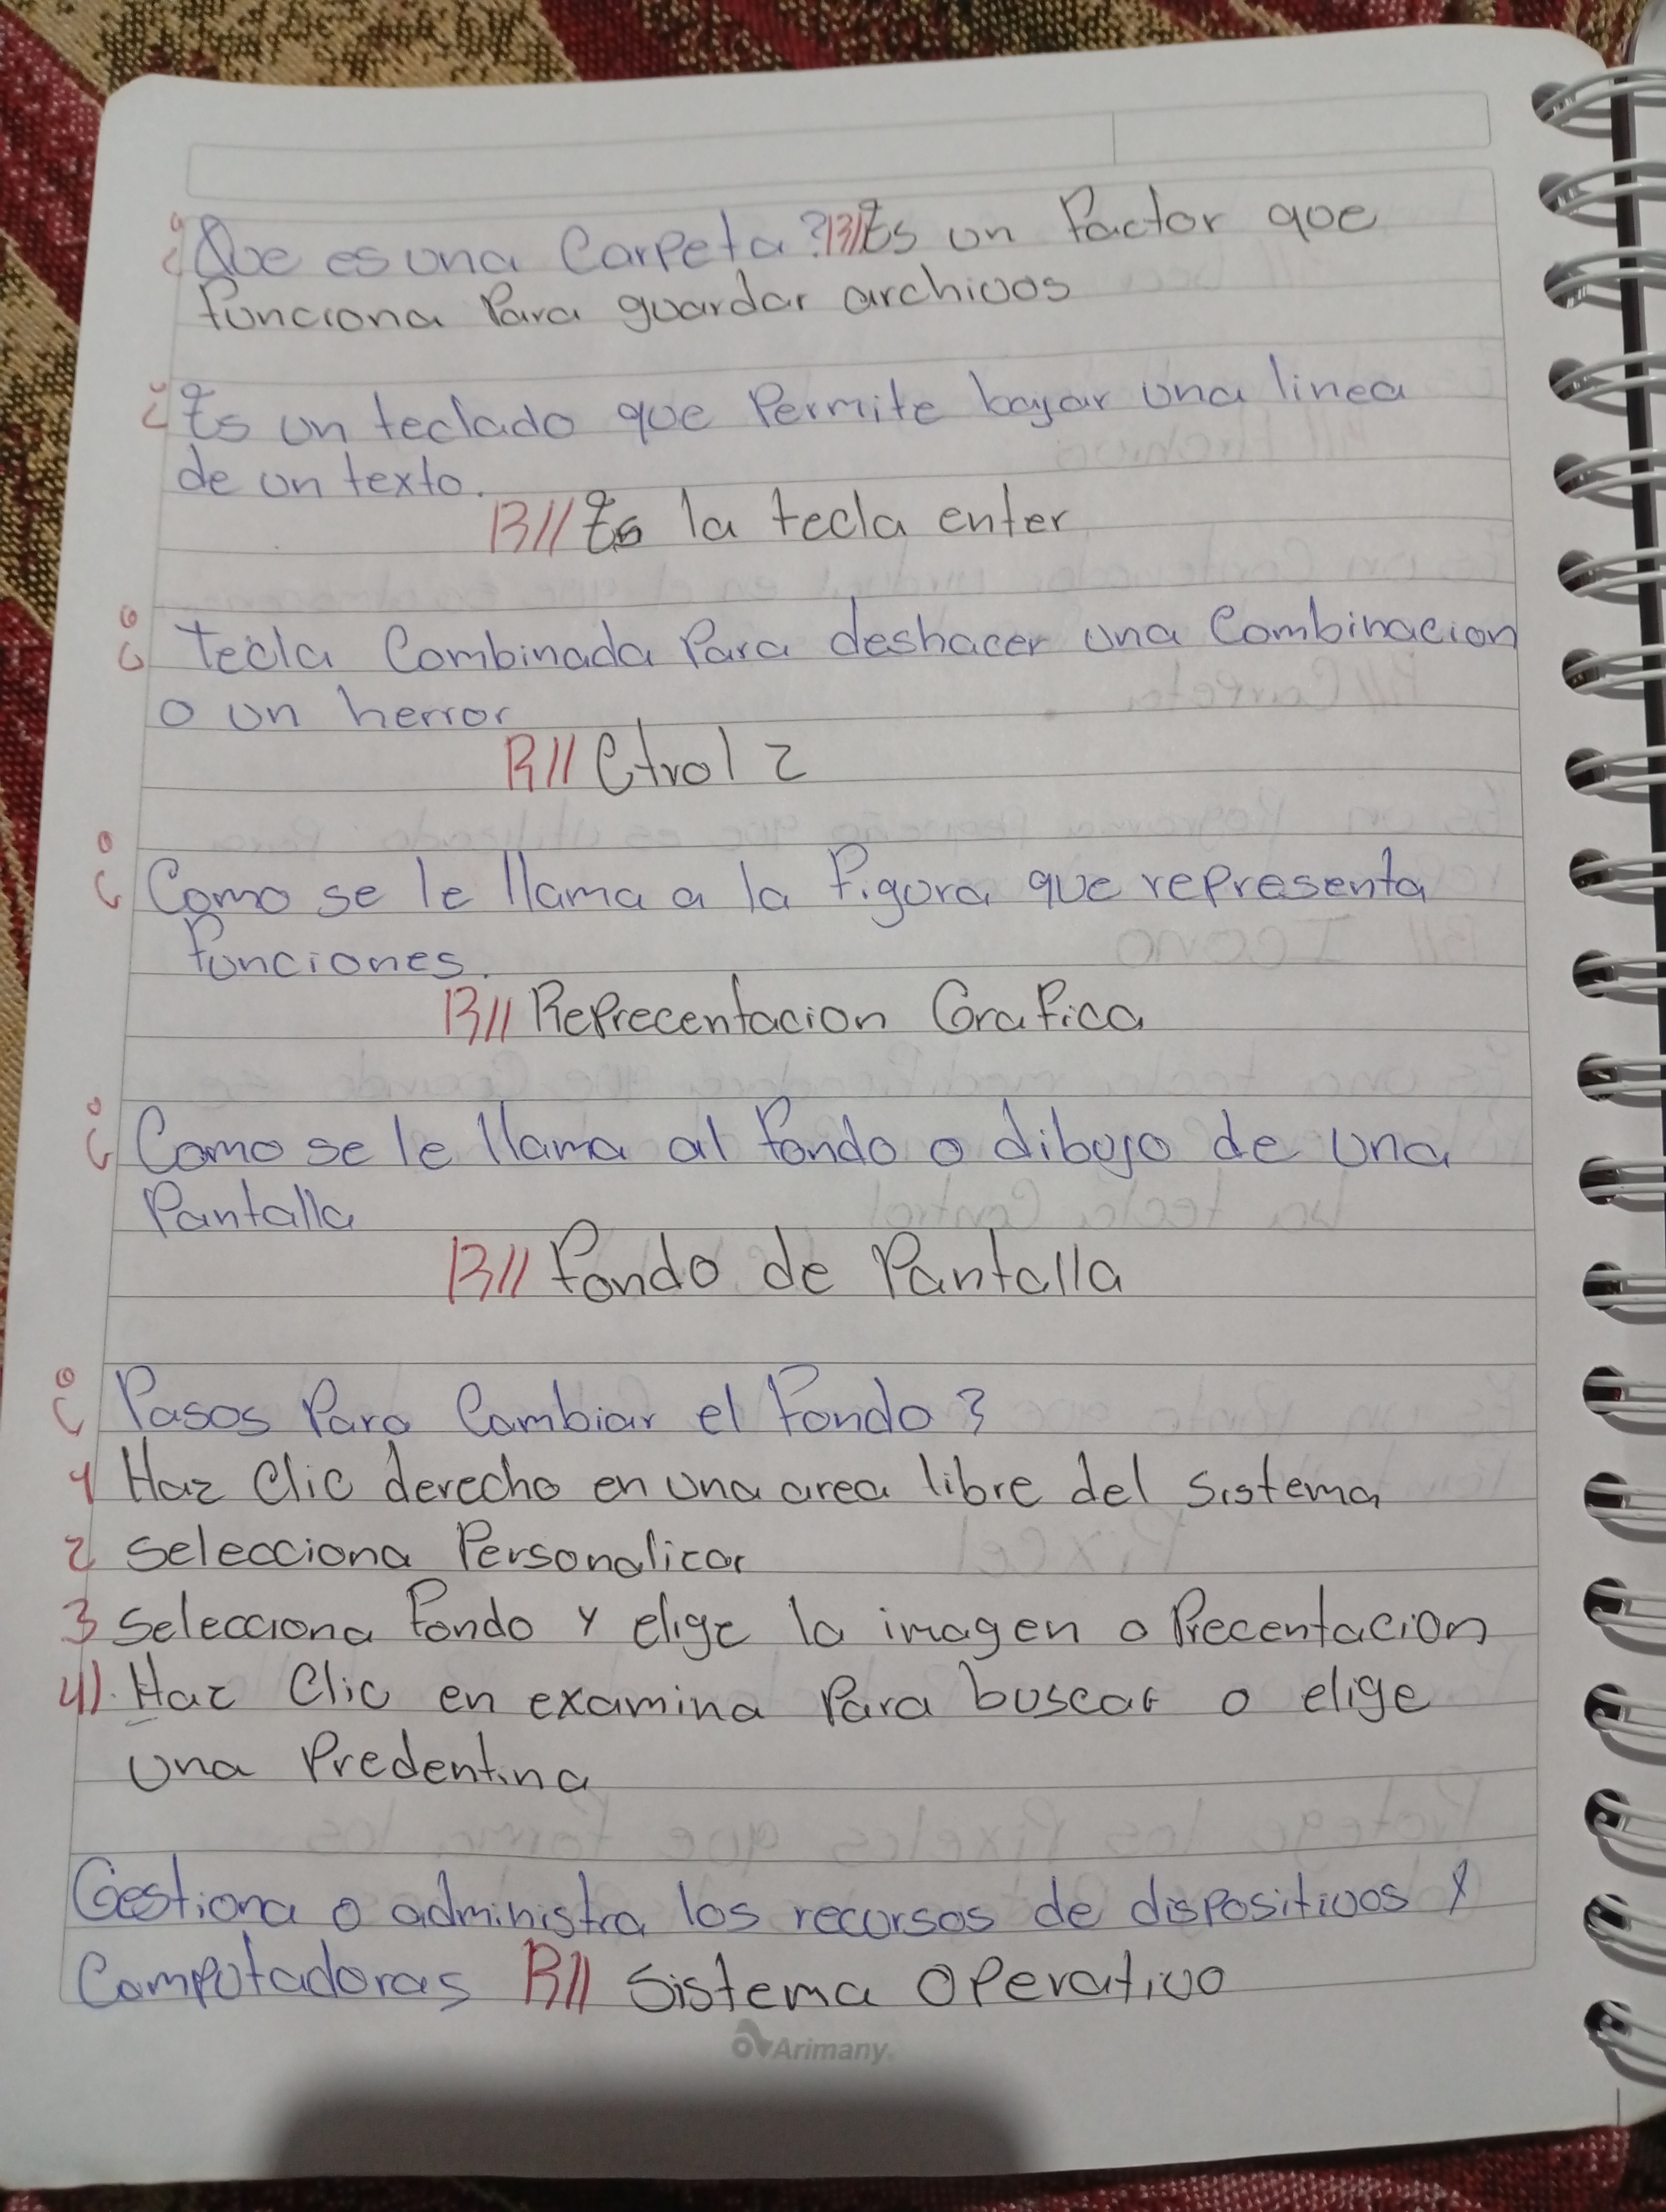 ¿Que es una Carpeta? R// Es un Factor que
funciona Para guardar archivos
¿Es un teclado que Permite bajar una linea
de un texto.
R// Es la tecla enter
¿ tecla Combinada Para deshacer una Combinacion
o un herror
R// Ctrol z
¿ Como se le llama a la figura que representa
funciones.
R// Reprecentacion Grafica
¿ Como se le llama al fondo o dibujo de una
Pantalla
R// fondo de Pantalla
¿ Pasos Para Cambiar el fondo?
1 Haz Clic derecho en una area libre del sistema
2 selecciona Personalizar
3 selecciona fondo y elige la imagen o Precentacion
4). Haz Clic en examina Para buscar o elige
una Predentina
Gestiona o administra los recursos de dispositivos y
Computadoras R// Sistema Operativo
Arimany.